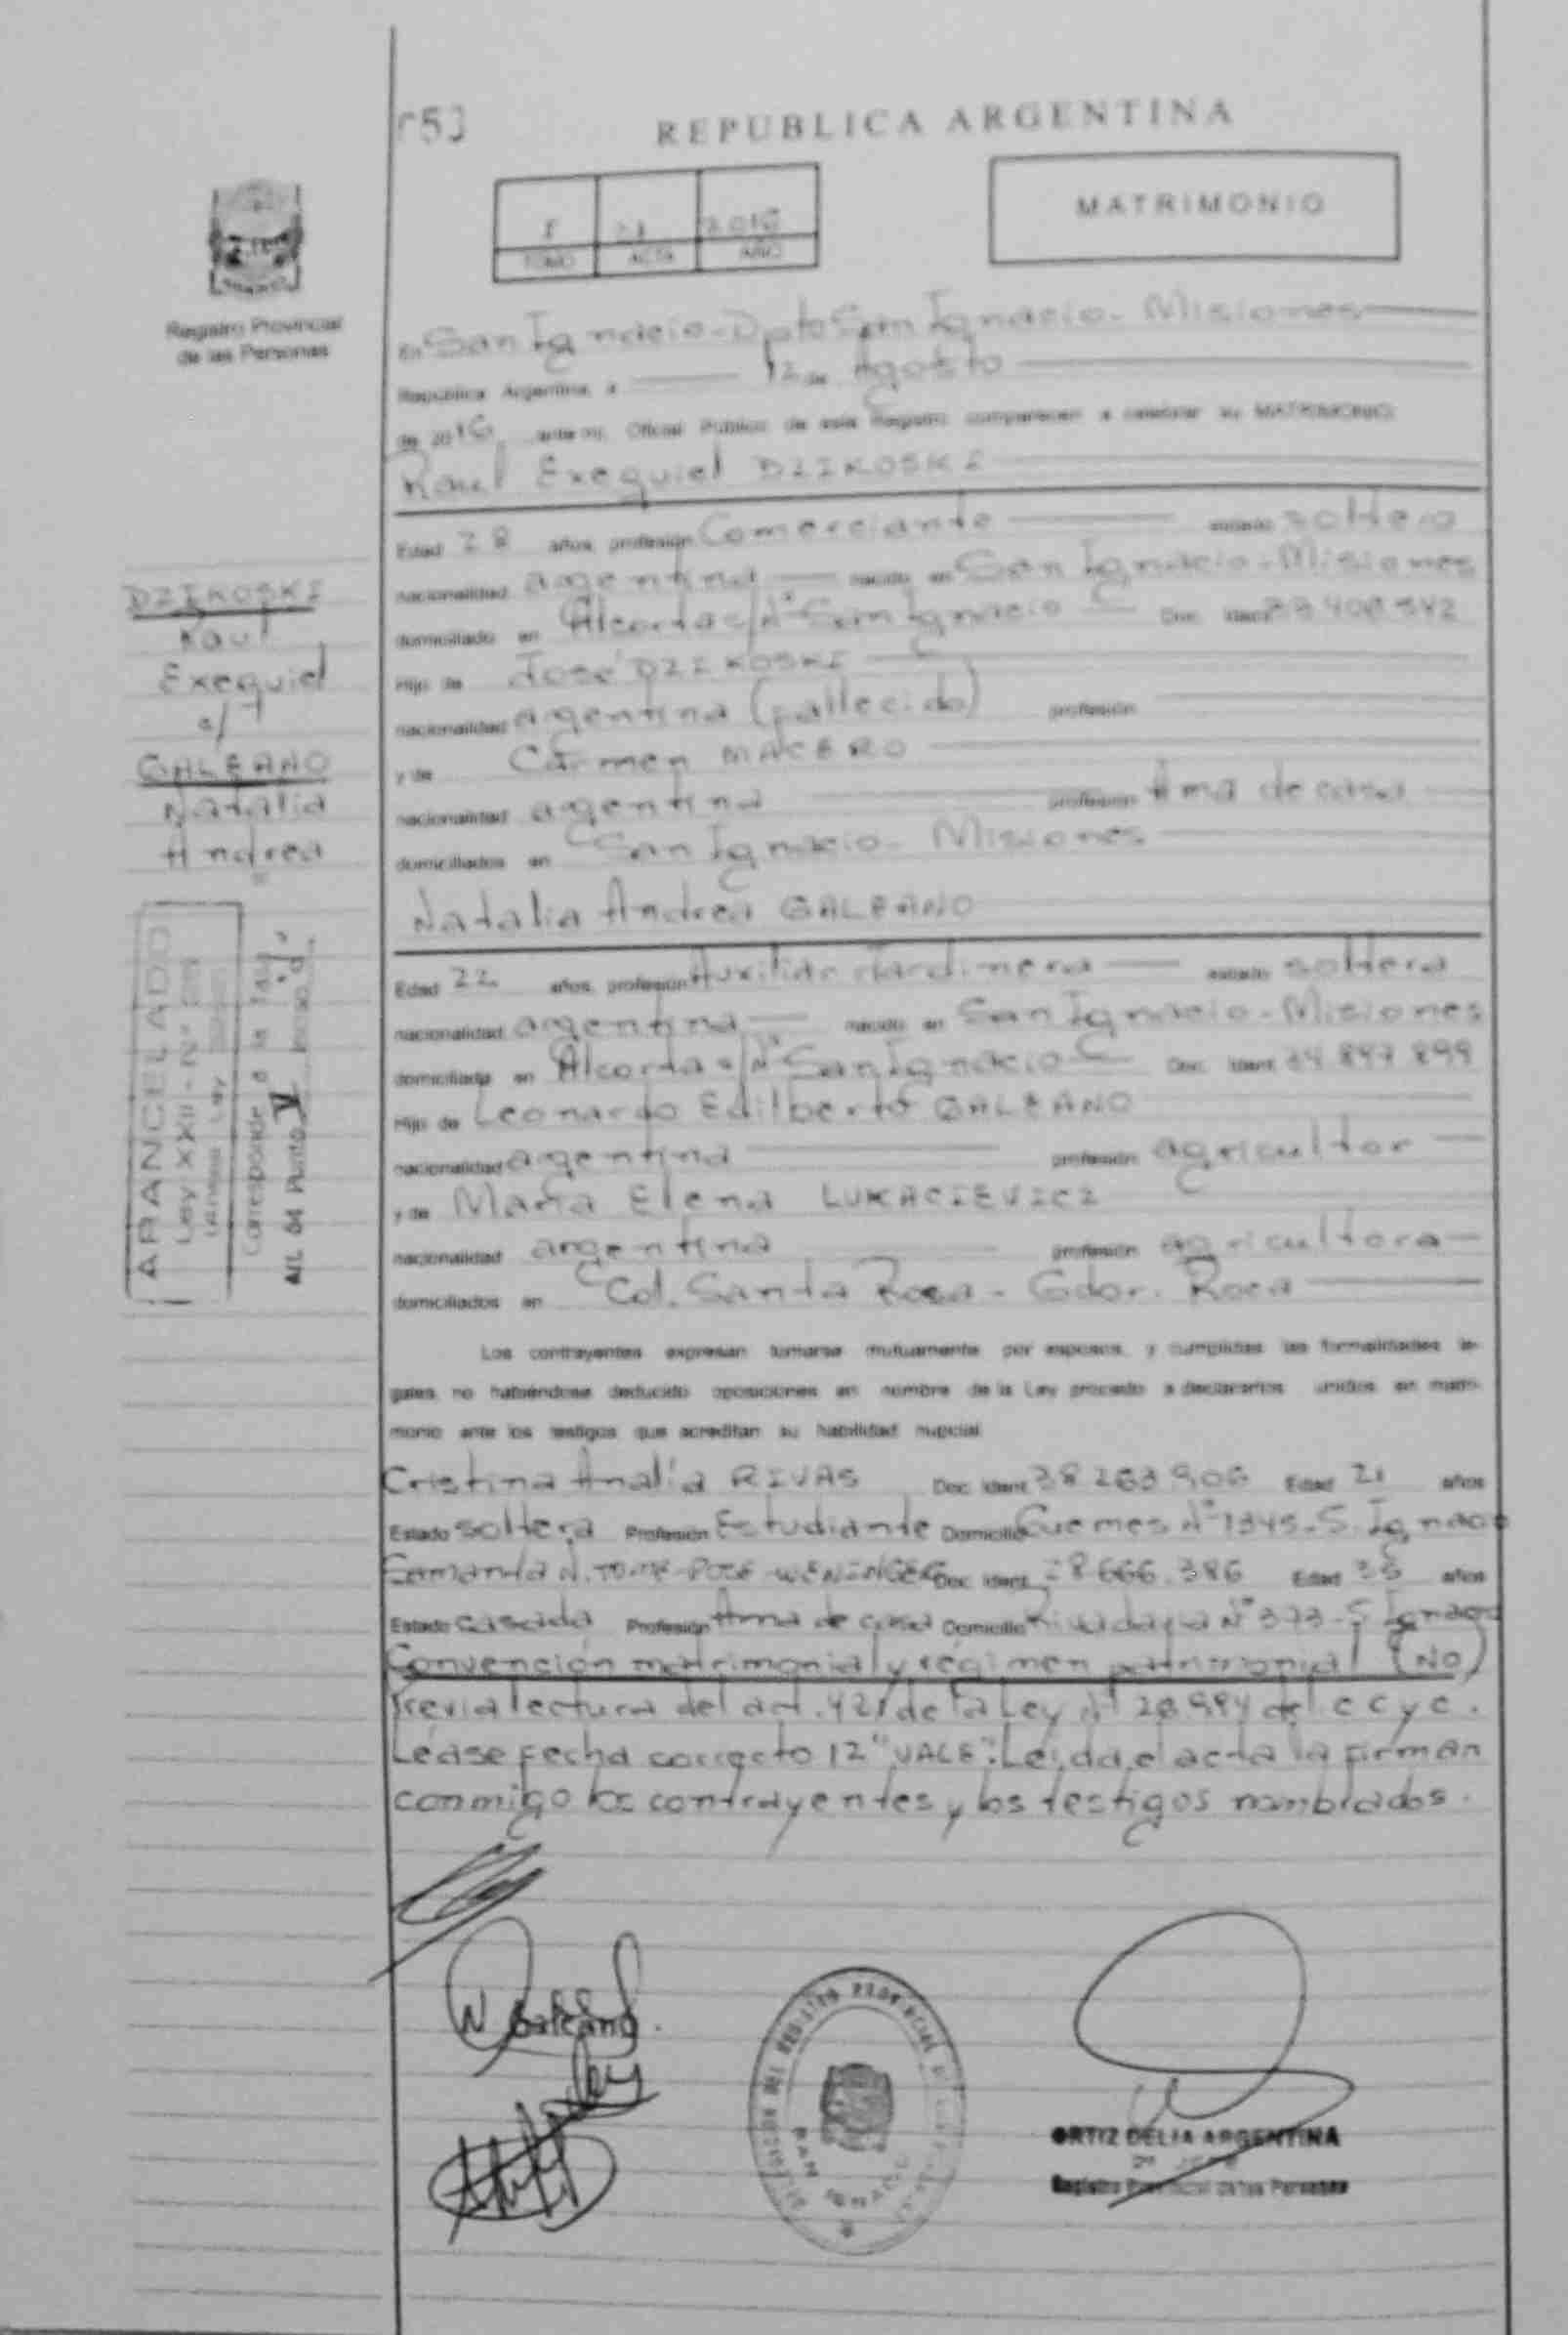 REPUBLICA ARGENTINA
MATRIMONIO
I 2016
TOMO ACTA AÑO
Registro Provincial
de las Personas
En San Ignacio - Dpto San Ignacio - Misiones
República Argentina, a 12 de Agosto
de 2016 ante mi, Oficial Público de este Registro comparecen a celebrar su MATRIMONIO
Raul Exequiel DZIKOSKI
Edad 28 años, profesión Comerciante estado soltero
nacionalidad argentina nacido en San Ignacio - Misiones
domiciliado en Alcorta s/Nº San Ignacio Doc. Ident.
Hijo de José DZIKOSKI
nacionalidad argentina (fallecido) profesión
y de Carmen MACERO
nacionalidad argentina profesión Ama de casa
domiciliados en San Ignacio - Misiones
Natalia Andrea GALEANO
Edad 22 años, profesión Auxiliar Jardinera estado soltera
nacionalidad argentina nacido en San Ignacio - Misiones
domiciliada en Alcorta s/Nº San Ignacio Doc. Ident.
Hijo de Leonardo Edilberto GALEANO
nacionalidad argentina profesión agricultor
y de María Elena LUKACIEVICZ
nacionalidad argentina profesión agricultora
domiciliados en Col. Santa Rosa - Gdor. Roca
Los contrayentes expresan tomarse mutuamente por esposos, y cumplidas las formalidades le-
gales, no habiéndose deducido oposiciones en nombre de la Ley procedo a declararlos unidos en matri-
monio ante los testigos que acreditan su habilidad nupcial.
Cristina Analía RIVAS Doc. Ident. 38 263 906 Edad 21 años
Estado soltera Profesión Estudiante Domicilio Guemes Nº 1345 - S. Ignacio
Samanta N. WENINGER Doc. Ident. 28 666.386 Edad 35 años
Estado casada Profesión Ama de casa Domicilio Rivadavia Nº 373 - S Ignacio
Convención matrimonial y régimen patrimonial (NO)
Previa lectura del art. 420 de la Ley Nº 26.994 del C C y C.
Léase fecha correcto 12 "VALE". Leída el acta la firman
conmigo los contrayentes y los testigos nombrados.
DZIKOSKI
Raul
Exequiel
c/
GALEANO
Natalia
Andrea
ARANCELADO
Ley XXII - Nº
Corresponde a la
Art. 64 Punto V Inciso "d"
N Galeano
SAN IGNACIO
ORTIZ DELIA ARGENTINA
Registro Provincial de las Personas